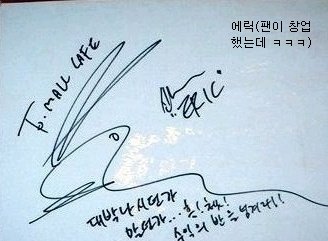 에릭(팬이 창업
했는데 ㅋㅋㅋ)
To. MALL CAFE
ERIC.
대박나시던가
말던가... 흥! 쳇!
수익의 반은 넘겨라!!